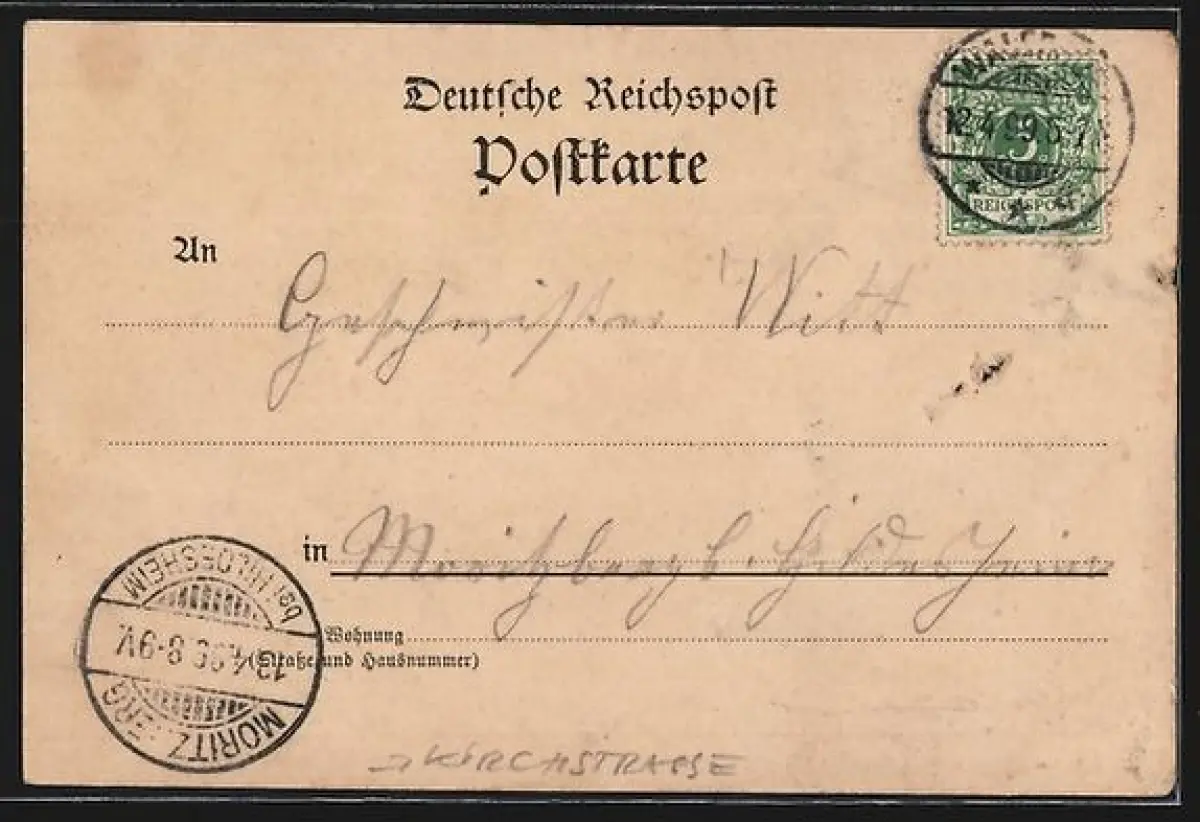 Deutsche Reichspost
Postkarte
12.4.99.
REICHSPOST
An
Geschwister Witt
in Moritzberg b. Hildesheim
bei HILDESHEIM
13.4.99 8-9V.
MORITZBERG
Wohnung
(Straße und Hausnummer)
KIRCHSTRASSE